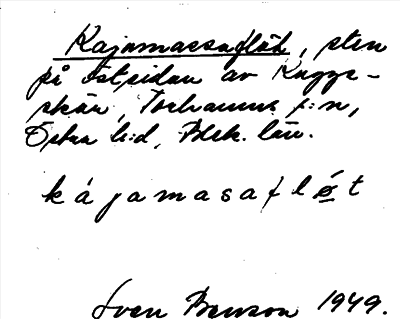 Kajamassaflöt, sten
på östsidan av Kuggs-
skär, Torhamns s:n,
Östra h:d, Blek. län.
kájamasaflö̱́t
Sven Benson 1949.